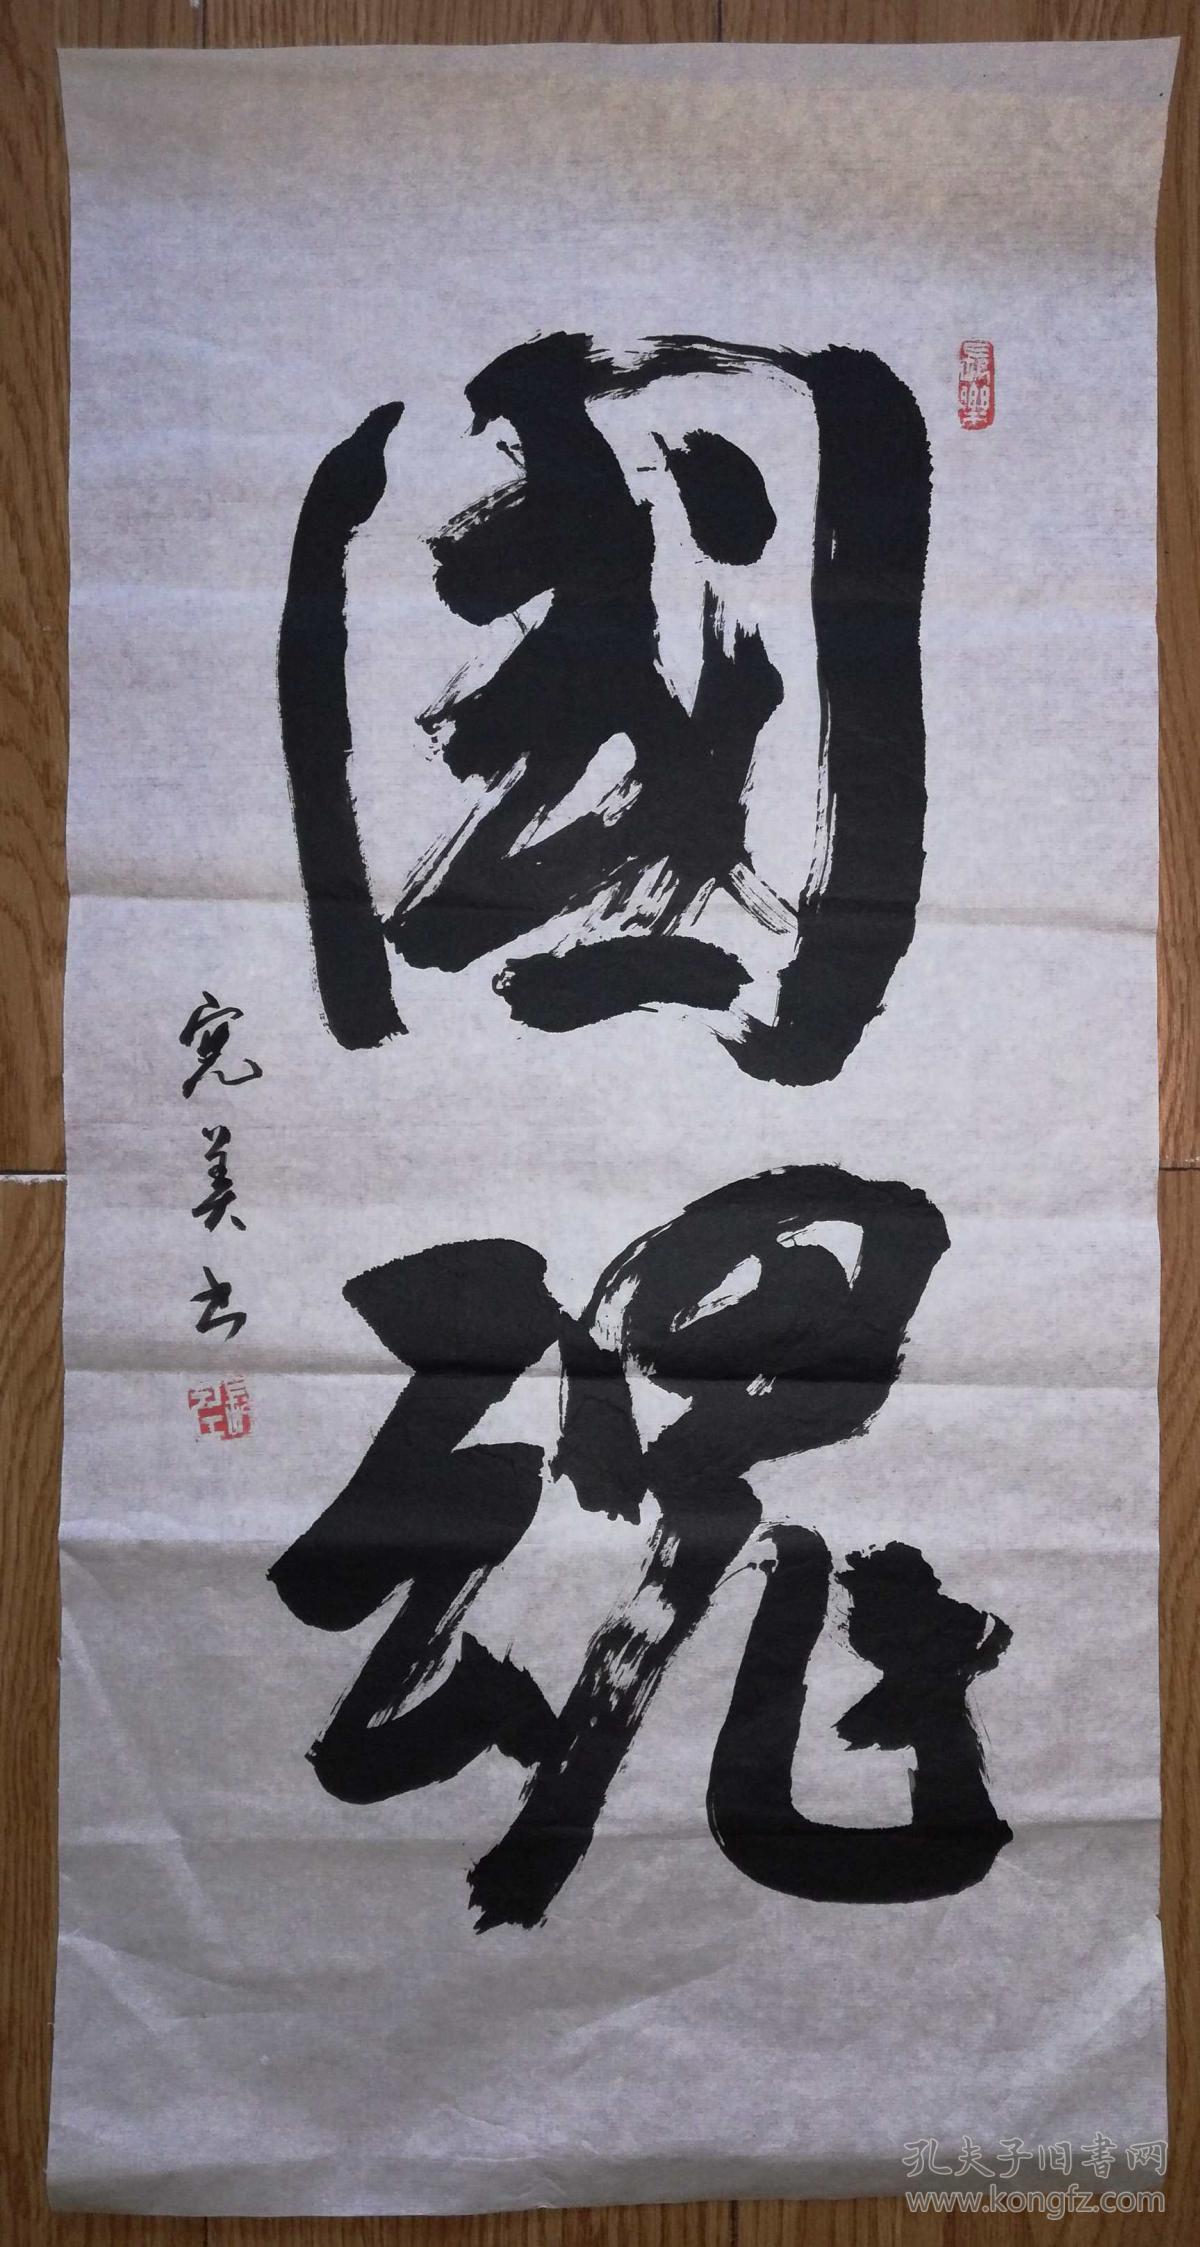 國魂
寛美书
長樂
孔夫子旧書网
www.kongfz.com